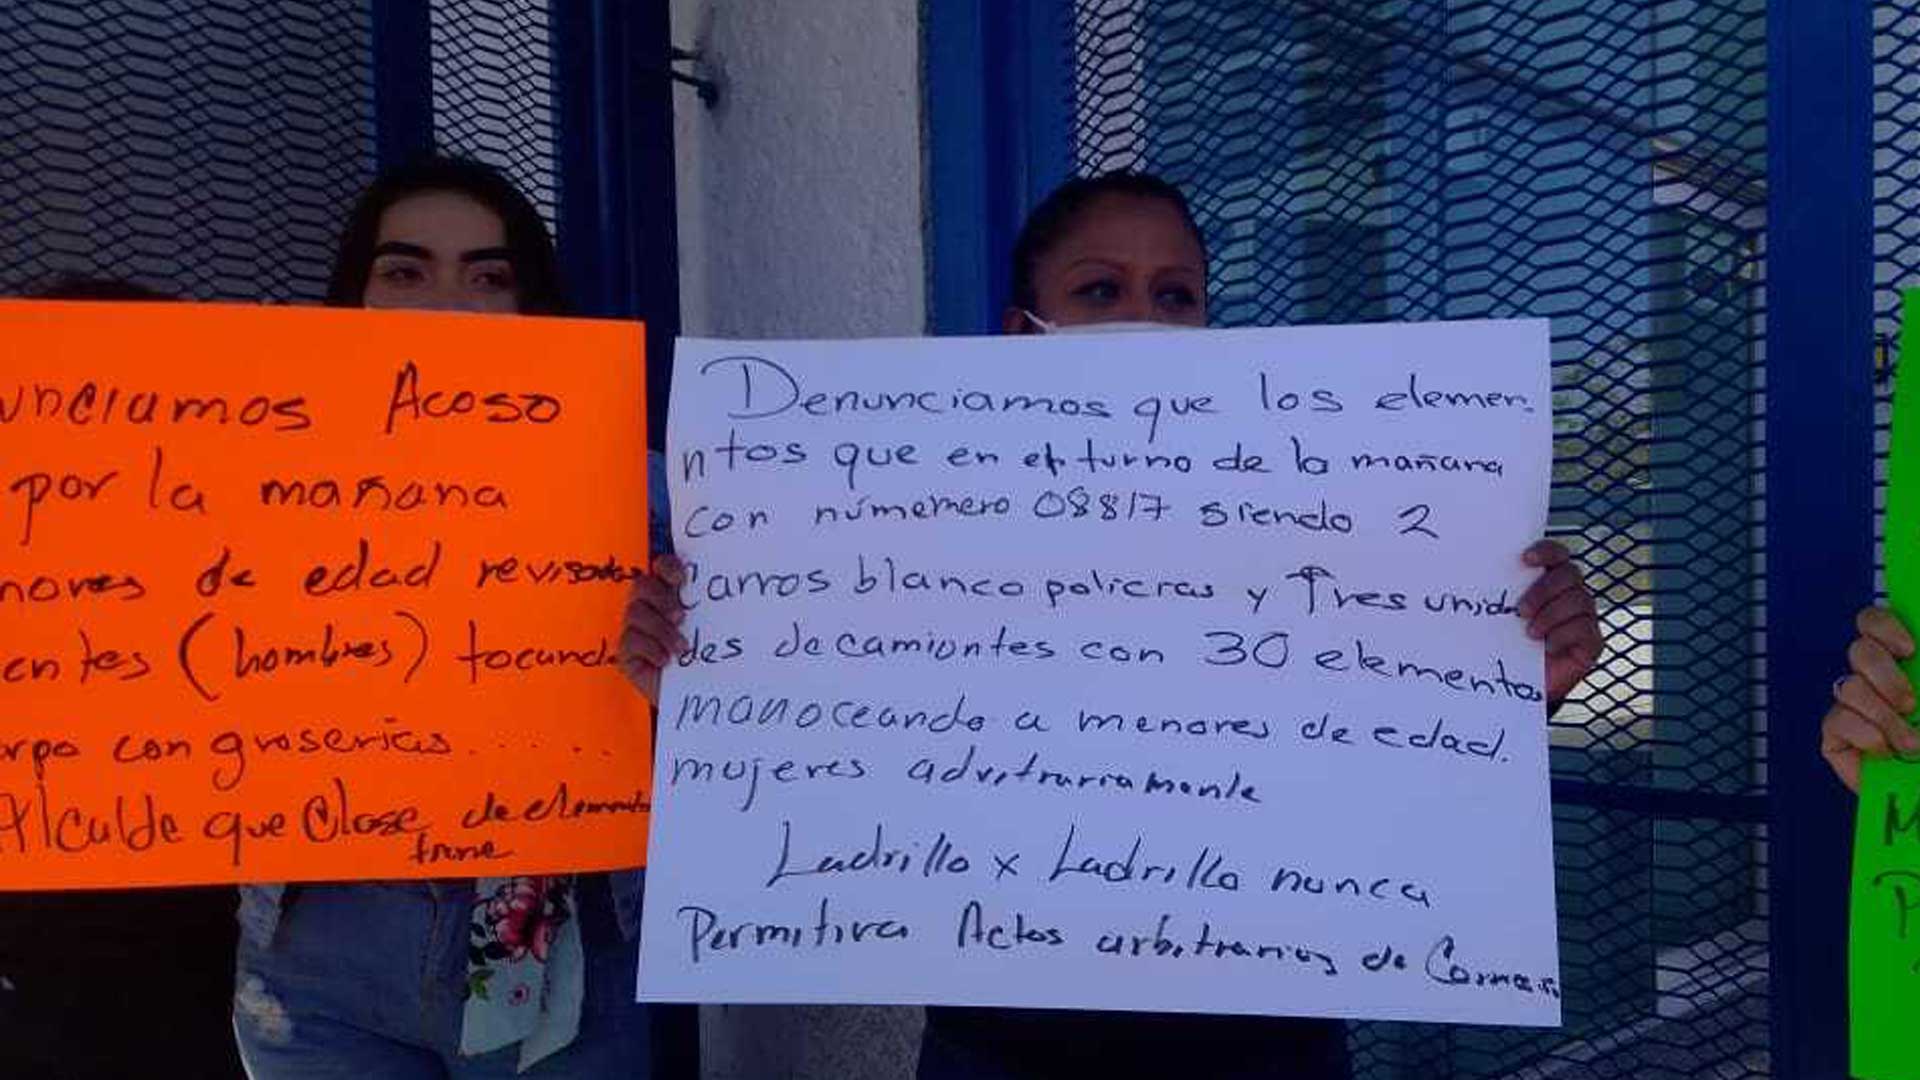 unciamos Acoso
por la mañana
nores de edad revisados
entes (hombres) tocando
rpo con groserias......
Alcalde que Clase de elementos
tiene
Denunciamos que los elemen-
ntos que en el turno de la mañana
con númemero 08817 siendo 2
Carros blanco policias y Tres unida
des de camiontes con 30 elementos
manoceando a menores de edad.
mujeres advitrariamente
Ladrillo x Ladrillo nunca
Permitira Actos arbitrarios de
M
P